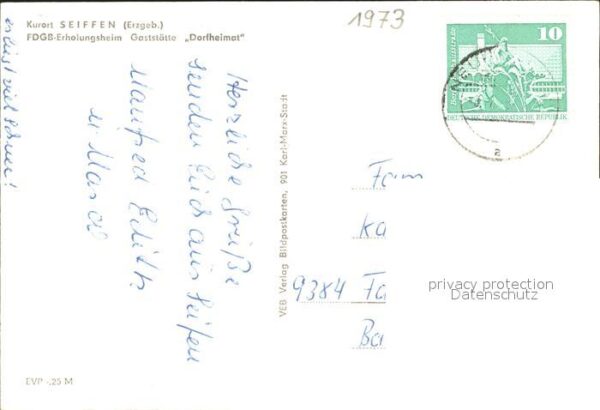 Kurort SEIFFEN (Erzgeb.)
FDGB-Erholungsheim Gaststätte „Dorfheimat"
1973
10
DEUTSCHE DEMOKRATISCHE REPUBLIK
a
Herzliche Grüße
senden Euch aus Seifen
Manfred Edith
u Mario
viel Schnee!
VEB Verlag Bildpostkarten, 901 Karl-Marx-Stadt
Fam
Ka
9384 Fa
Ba
privacy protection
Datenschutz
EVP -,25 M